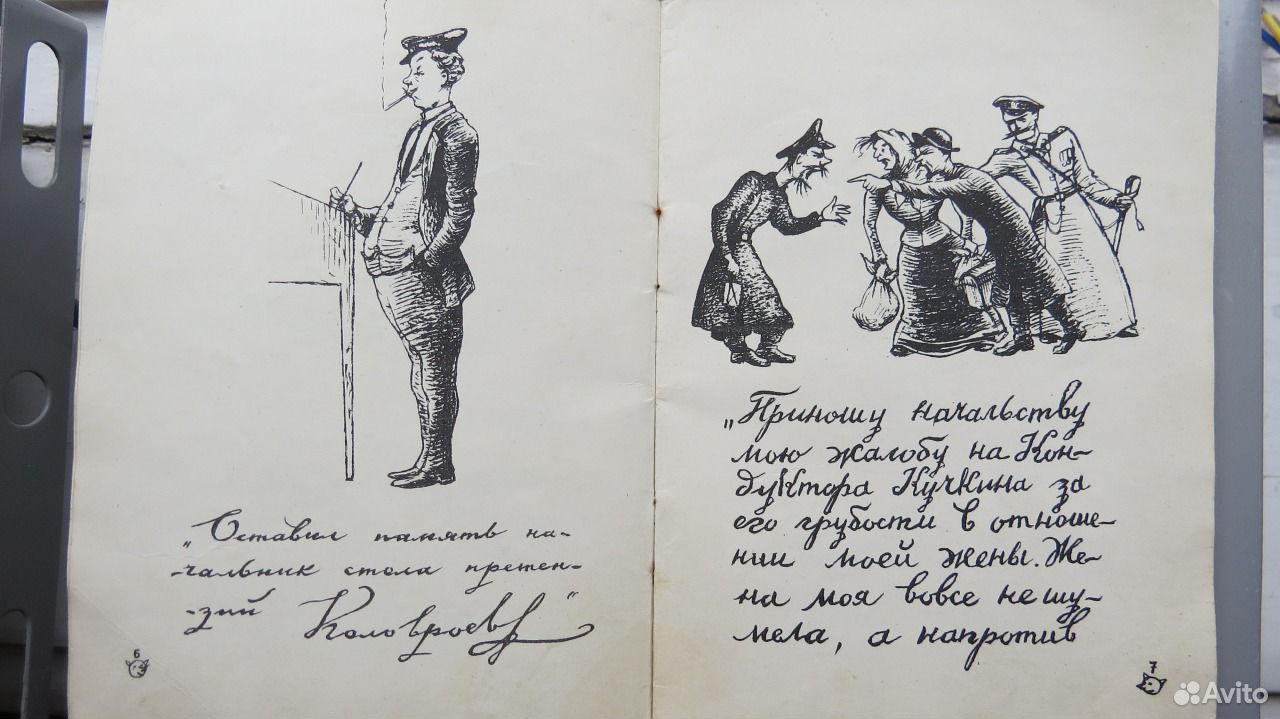 „Оставил память на-
-чальник стола претен-
-зий Коловроев"
6
„Приношу начальству
мою жалобу на Кон-
дуктора Кучкина за
его грубости в отноше-
нии моей жены. Же-
на моя вовсе не шу-
мела, а напротив
7
Avito